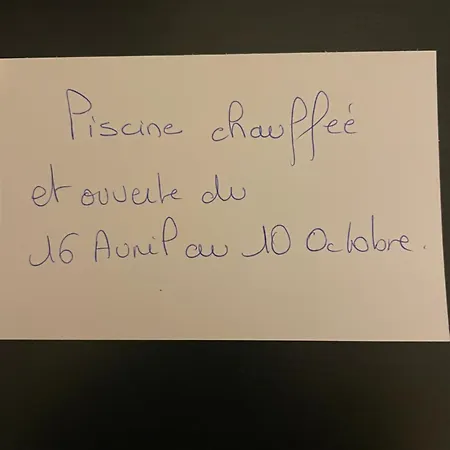 Piscine chauffée
et ouverte du
16 Avril au 10 Octobre.